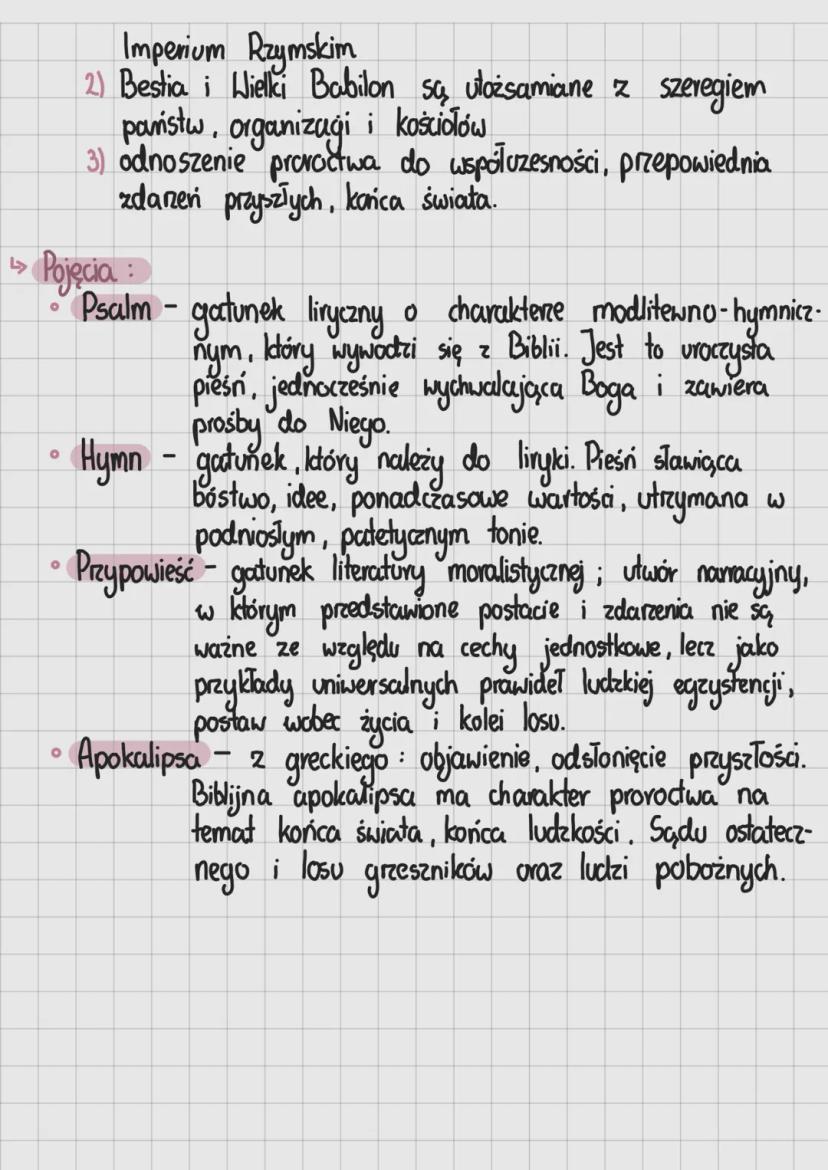 Imperium Rzymskim
2) Bestia i Wielki Babilon są utożsamiane z szeregiem
państw, organizacji i kościołów
3) odnoszenie proroctwa do współczesności, przepowiednia
zdarzeń przyszłych, końca świata.
↳ Pojęcia :
• Psalm - gatunek liryczny o charakterze modlitewno-hymnicz-
nym, który wywodzi się z Biblii. Jest to uroczysta
pieśń, jednocześnie wychwalająca Boga i zawiera
prośby do Niego.
• Hymn - gatunek, który należy do liryki. Pieśń sławiąca
bóstwo, idee, ponadczasowe wartości, utrzymana w
podniosłym, patetycznym tonie.
• Przypowieść - gatunek literatury moralistycznej ; utwór narracyjny,
w którym przedstawione postacie i zdarzenia nie są
ważne ze względu na cechy jednostkowe, lecz jako
przykłady uniwersalnych prawideł ludzkiej egzystencji,
postaw wobec życia i kolei losu.
• Apokalipsa - z greckiego : objawienie, odsłonięcie przyszłości.
Biblijna apokalipsa ma charakter proroctwa na
temat końca świata, końca ludzkości, Sądu ostatecz-
nego i losu grzeszników oraz ludzi pobożnych.